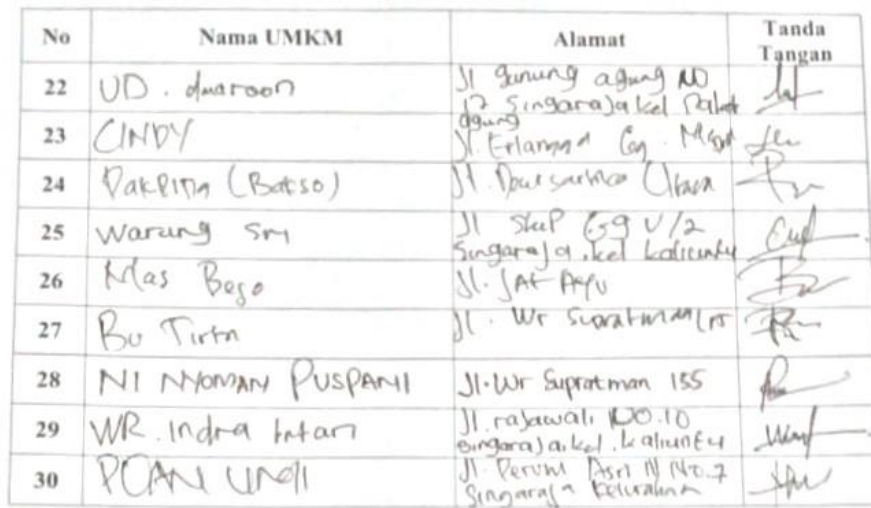 No Nama UMKM Alamat Tanda
Tangan
22 UD. dmaroon Jl gunung agung NO
17 Singaraja kel Paket
agung
23 CINDY Jl. Erlangga Gg.
24 Pak Pina (Bakso) Jl. Utara
25 Warung Sri Jl Skip Gg V/2
Singaraja. kel kaliuntu
26 Mas Bejo Jl. JAt Ayu
27 Bu Tirta Jl. Wr Supratman
28 NI NYOMAN PUSPANI Jl. Wr Supratman 155
29 WR. Indra Jl. rajawali NO.10
Singaraja. kel. kaliuntu
30 Jl. Perum Asri No. 7
Singaraja Kelurahan